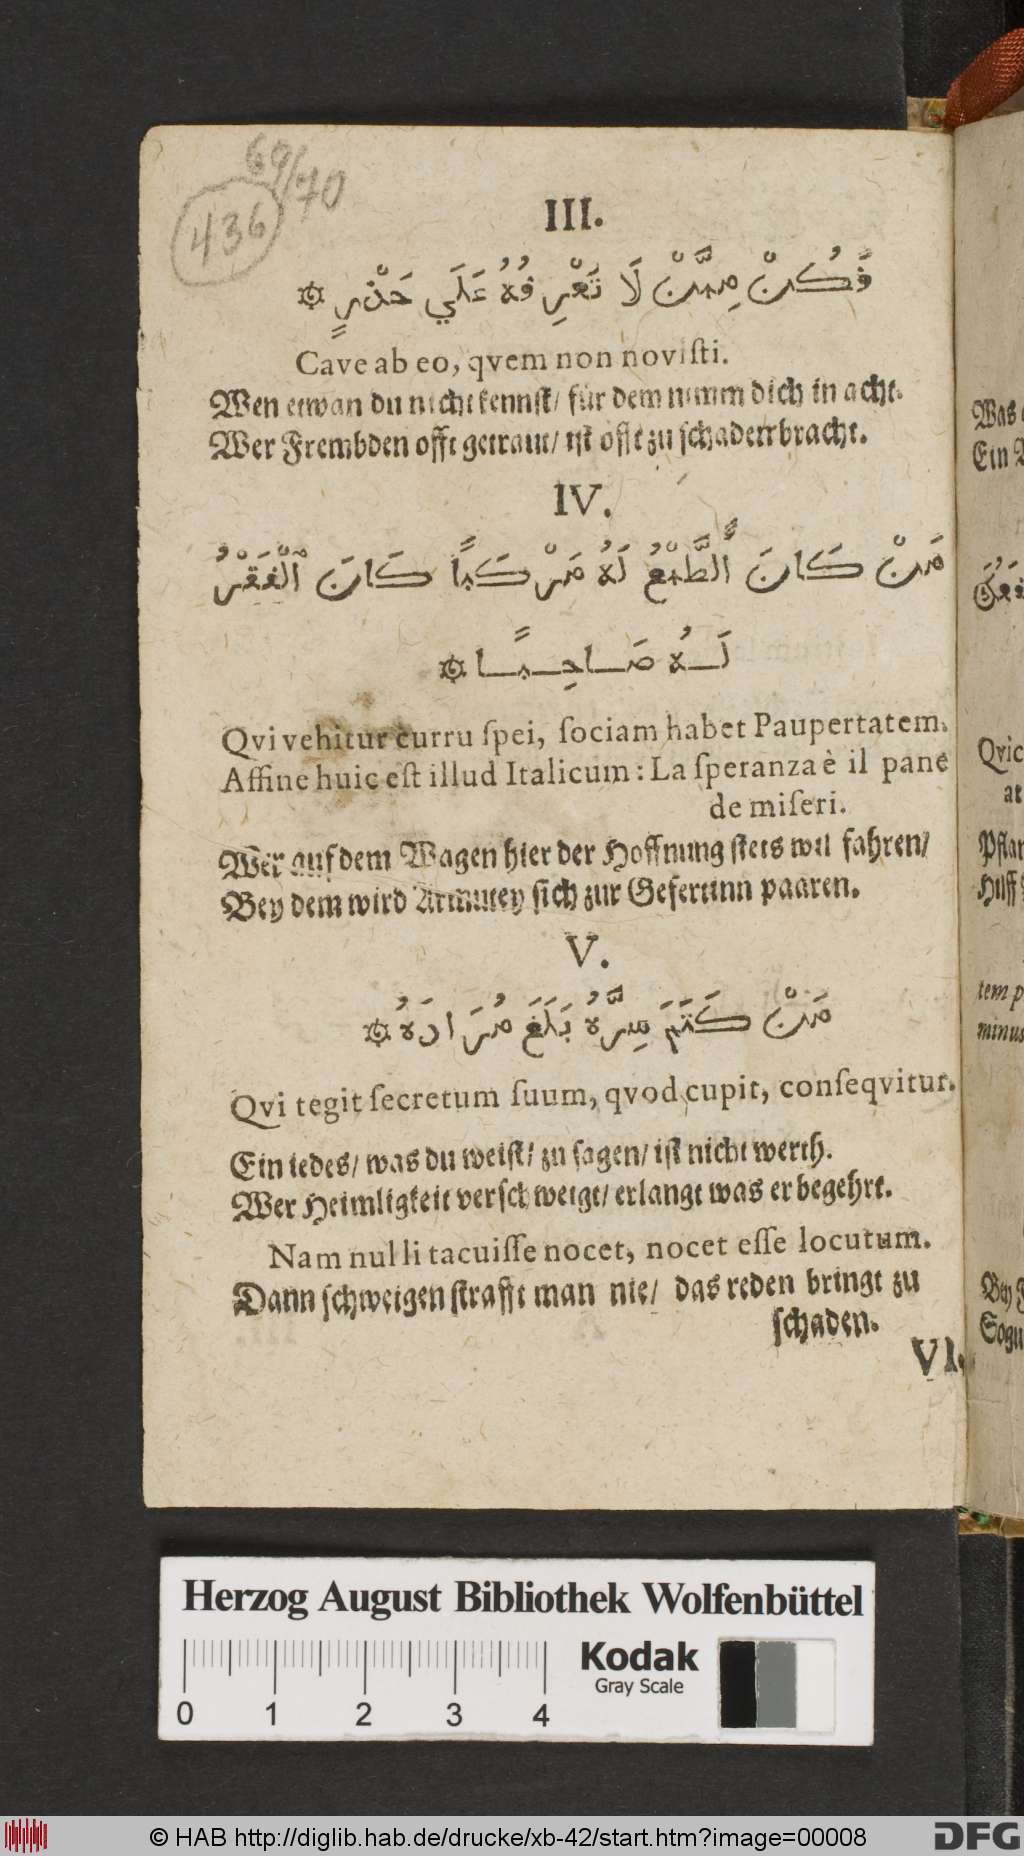 69/70
436
III.
فَكُنْ مِمَّنْ لَا تَعْرِفُهُ عَلَي حَذْرٍ
Cave ab eo, qvem non noviſti.
Wen etwan du nicht kennſt/ für dem nimm dich in acht.
Wer Frembden offt getraut/ iſt offt zu ſchaden bracht.
IV.
مَنْ كَانَ اَلطَّمْعُ لَهُ مَرْكَبًا كَانَ ٱلْفَقْرُ
لَهُ صَاحِبًا
Qvi vehitur curru ſpei, ſociam habet Paupertatem.
Affine huic eſt illud Italicum : La ſperanza è il pane
de miſeri.
Wer auf dem Wagen hier der Hoffnung ſtets wil fahren/
Bey dem wird Armutey ſich zur Gefertinn paaren.
V.
مَنْ كَتَمَ سِرَّهُ بَلَغَ مُرَادَهُ
Qvi tegit ſecretum ſuum, qvod cupit, conſeqvitur.
Ein iedes/ was du weiſt/ zu ſagen/ iſt nicht werth.
Wer Heimligkeit verſchweigt/ erlangt was er begehrt.
Nam nulli tacuiſſe nocet, nocet eſſe locutum.
Dann ſchweigen ſtrafft man nie/ das reden bringt zu
ſchaden.
VI.
Was
Ein
Qvic
at
Pflan
Hilff
tem p
minus
Bey
Sogu
Herzog August Bibliothek Wolfenbüttel
Kodak
Gray Scale
0 1 2 3 4
© HAB http://diglib.hab.de/drucke/xb-42/start.htm?image=00008
DFG